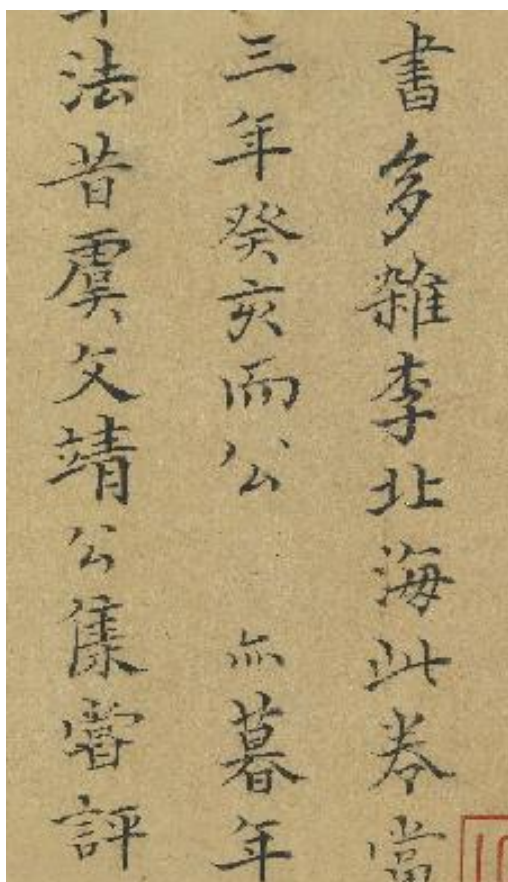 書多雜李北海此卷當
三年癸亥而公 亦暮年
法昔虞文靖公集嘗評